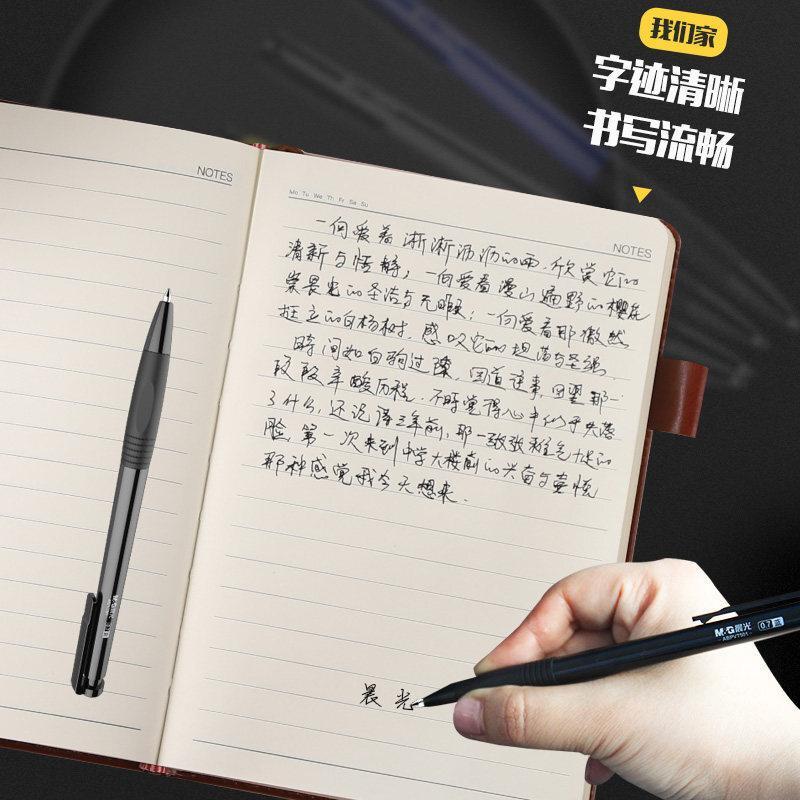 我们家
字迹清晰
书写流畅
NOTES
Mo Tu We Th Fr Sa Su
NOTES
一向爱着淅淅沥沥的雨，欣赏它的
清新与恬静；一向爱着漫山遍野的樱花
崇畏它的圣洁与无暇；一向爱着那傲然
挺立的白杨树，感叹它的坦荡与坚强．
时间如白驹过隙，回道往来，回望那一
段段辛酸历程．不时觉得心中似乎失落
了什么，还记得三年前，那一张张稚气十足的
脸，第一次来到中学大楼前的兴奋与喜悦
那种感觉我今天想来．
晨光
M&G晨光
ABPV7501
0.7